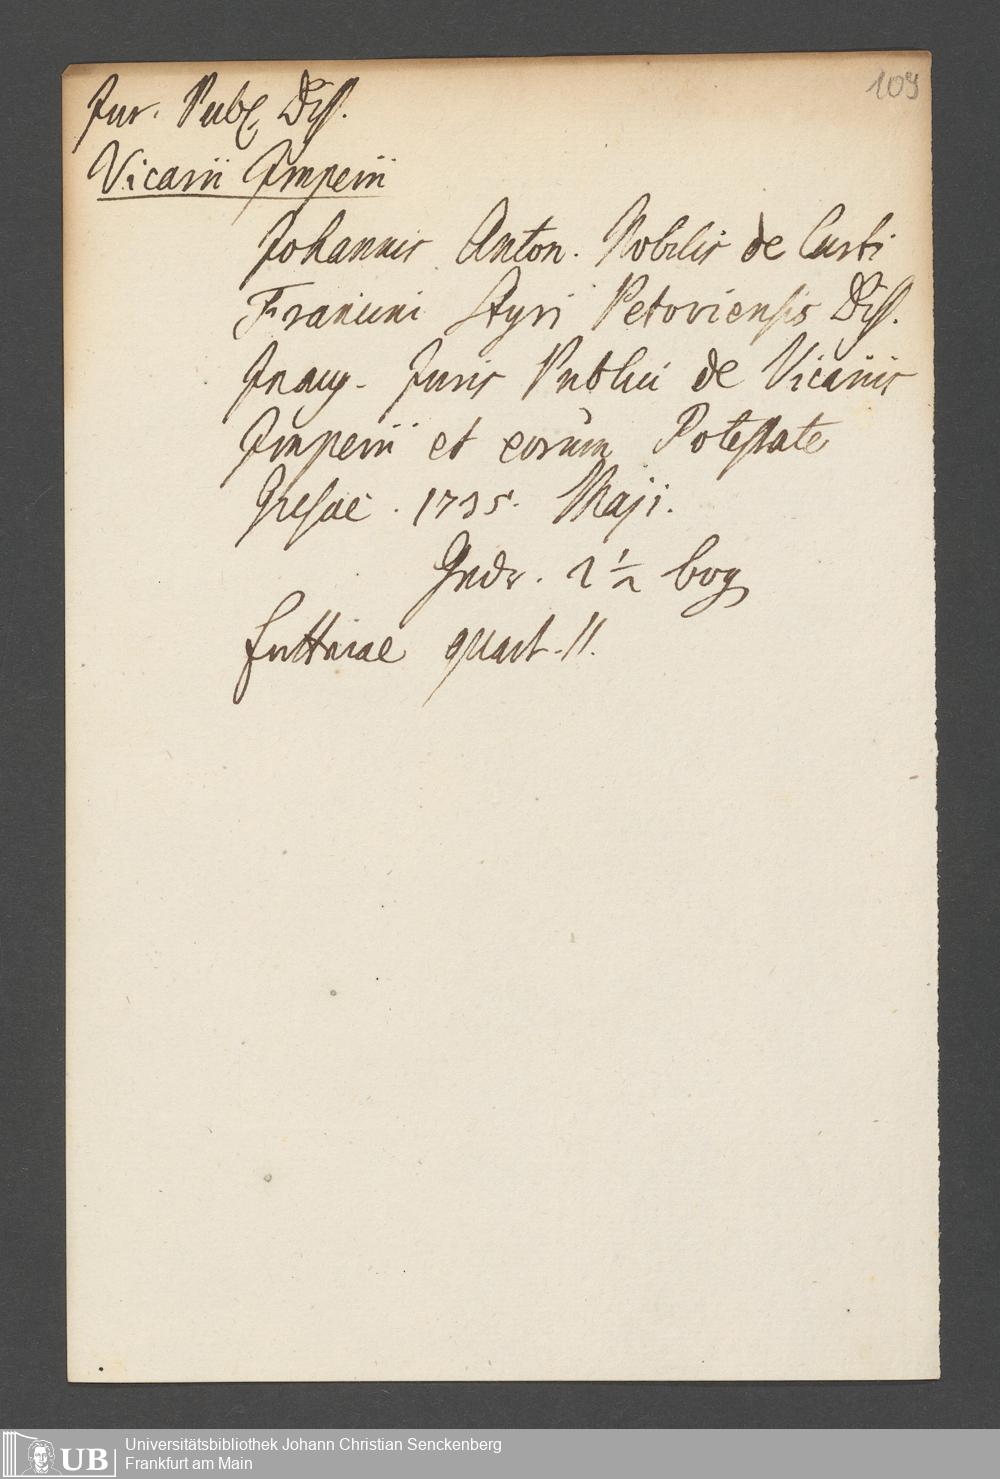 109
Jur. Publ. Diss.
Vicarii Imperii
Johannis Anton. Nobilis de Curti
Franсini Styri Petoviensis Diss.
Inaug. Juris Publici de Vicariis
Imperii et eorum Potestate
Giessae. 1735. Maji.
2 1/2 bog
quart. 11.
Universitätsbibliothek Johann Christian Senckenberg
Frankfurt am Main
UB